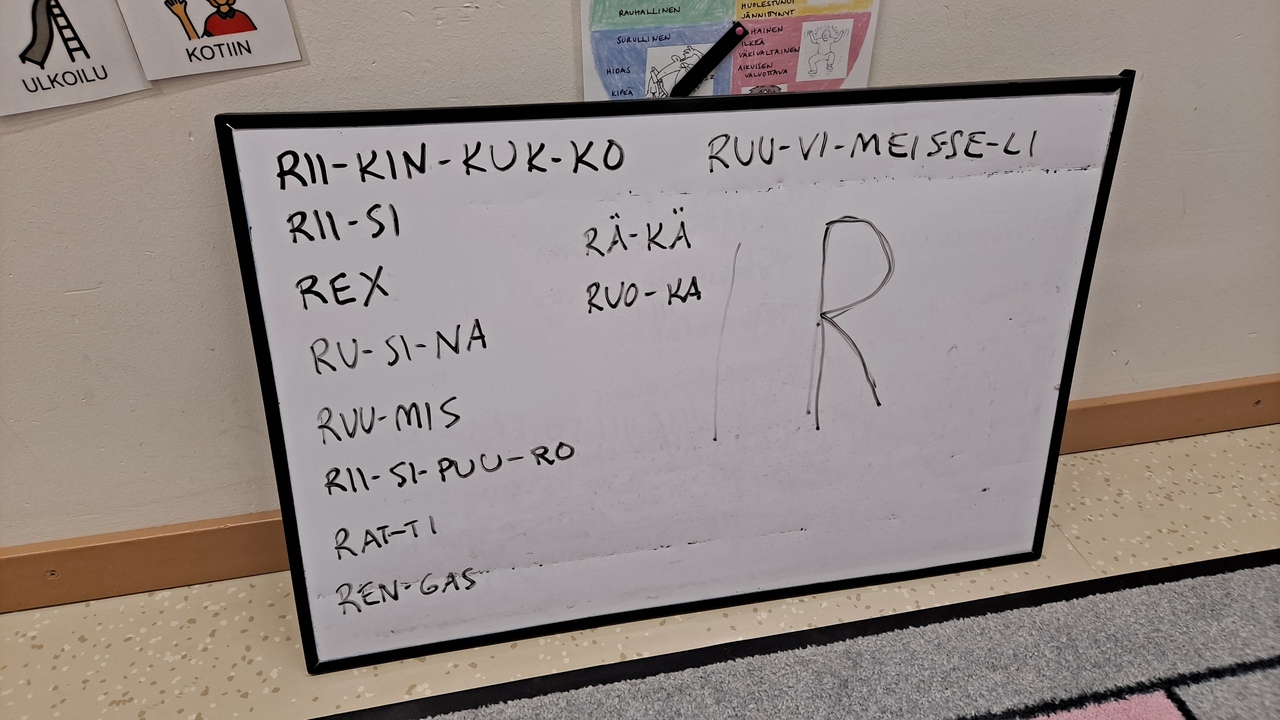 ULKOILU
KOTIIN
RAUHALLINEN
HUOLESTUNUT
JÄNNITTYNYT
SURULLINEN
HIDAS
KIPEÄ
ILKEÄ
VÄKIVALTAINEN
AIKUISEN
VALUOTTAVA
RII-KIN-KUK-KO
RUU-VI-MEIS-SE-LI
RII-SI
REX
RU-SI-NA
RUU-MIS
RII-SI-PUU-RO
RAT-TI
REN-GAS
RÄ-KÄ
RUO-KA
R